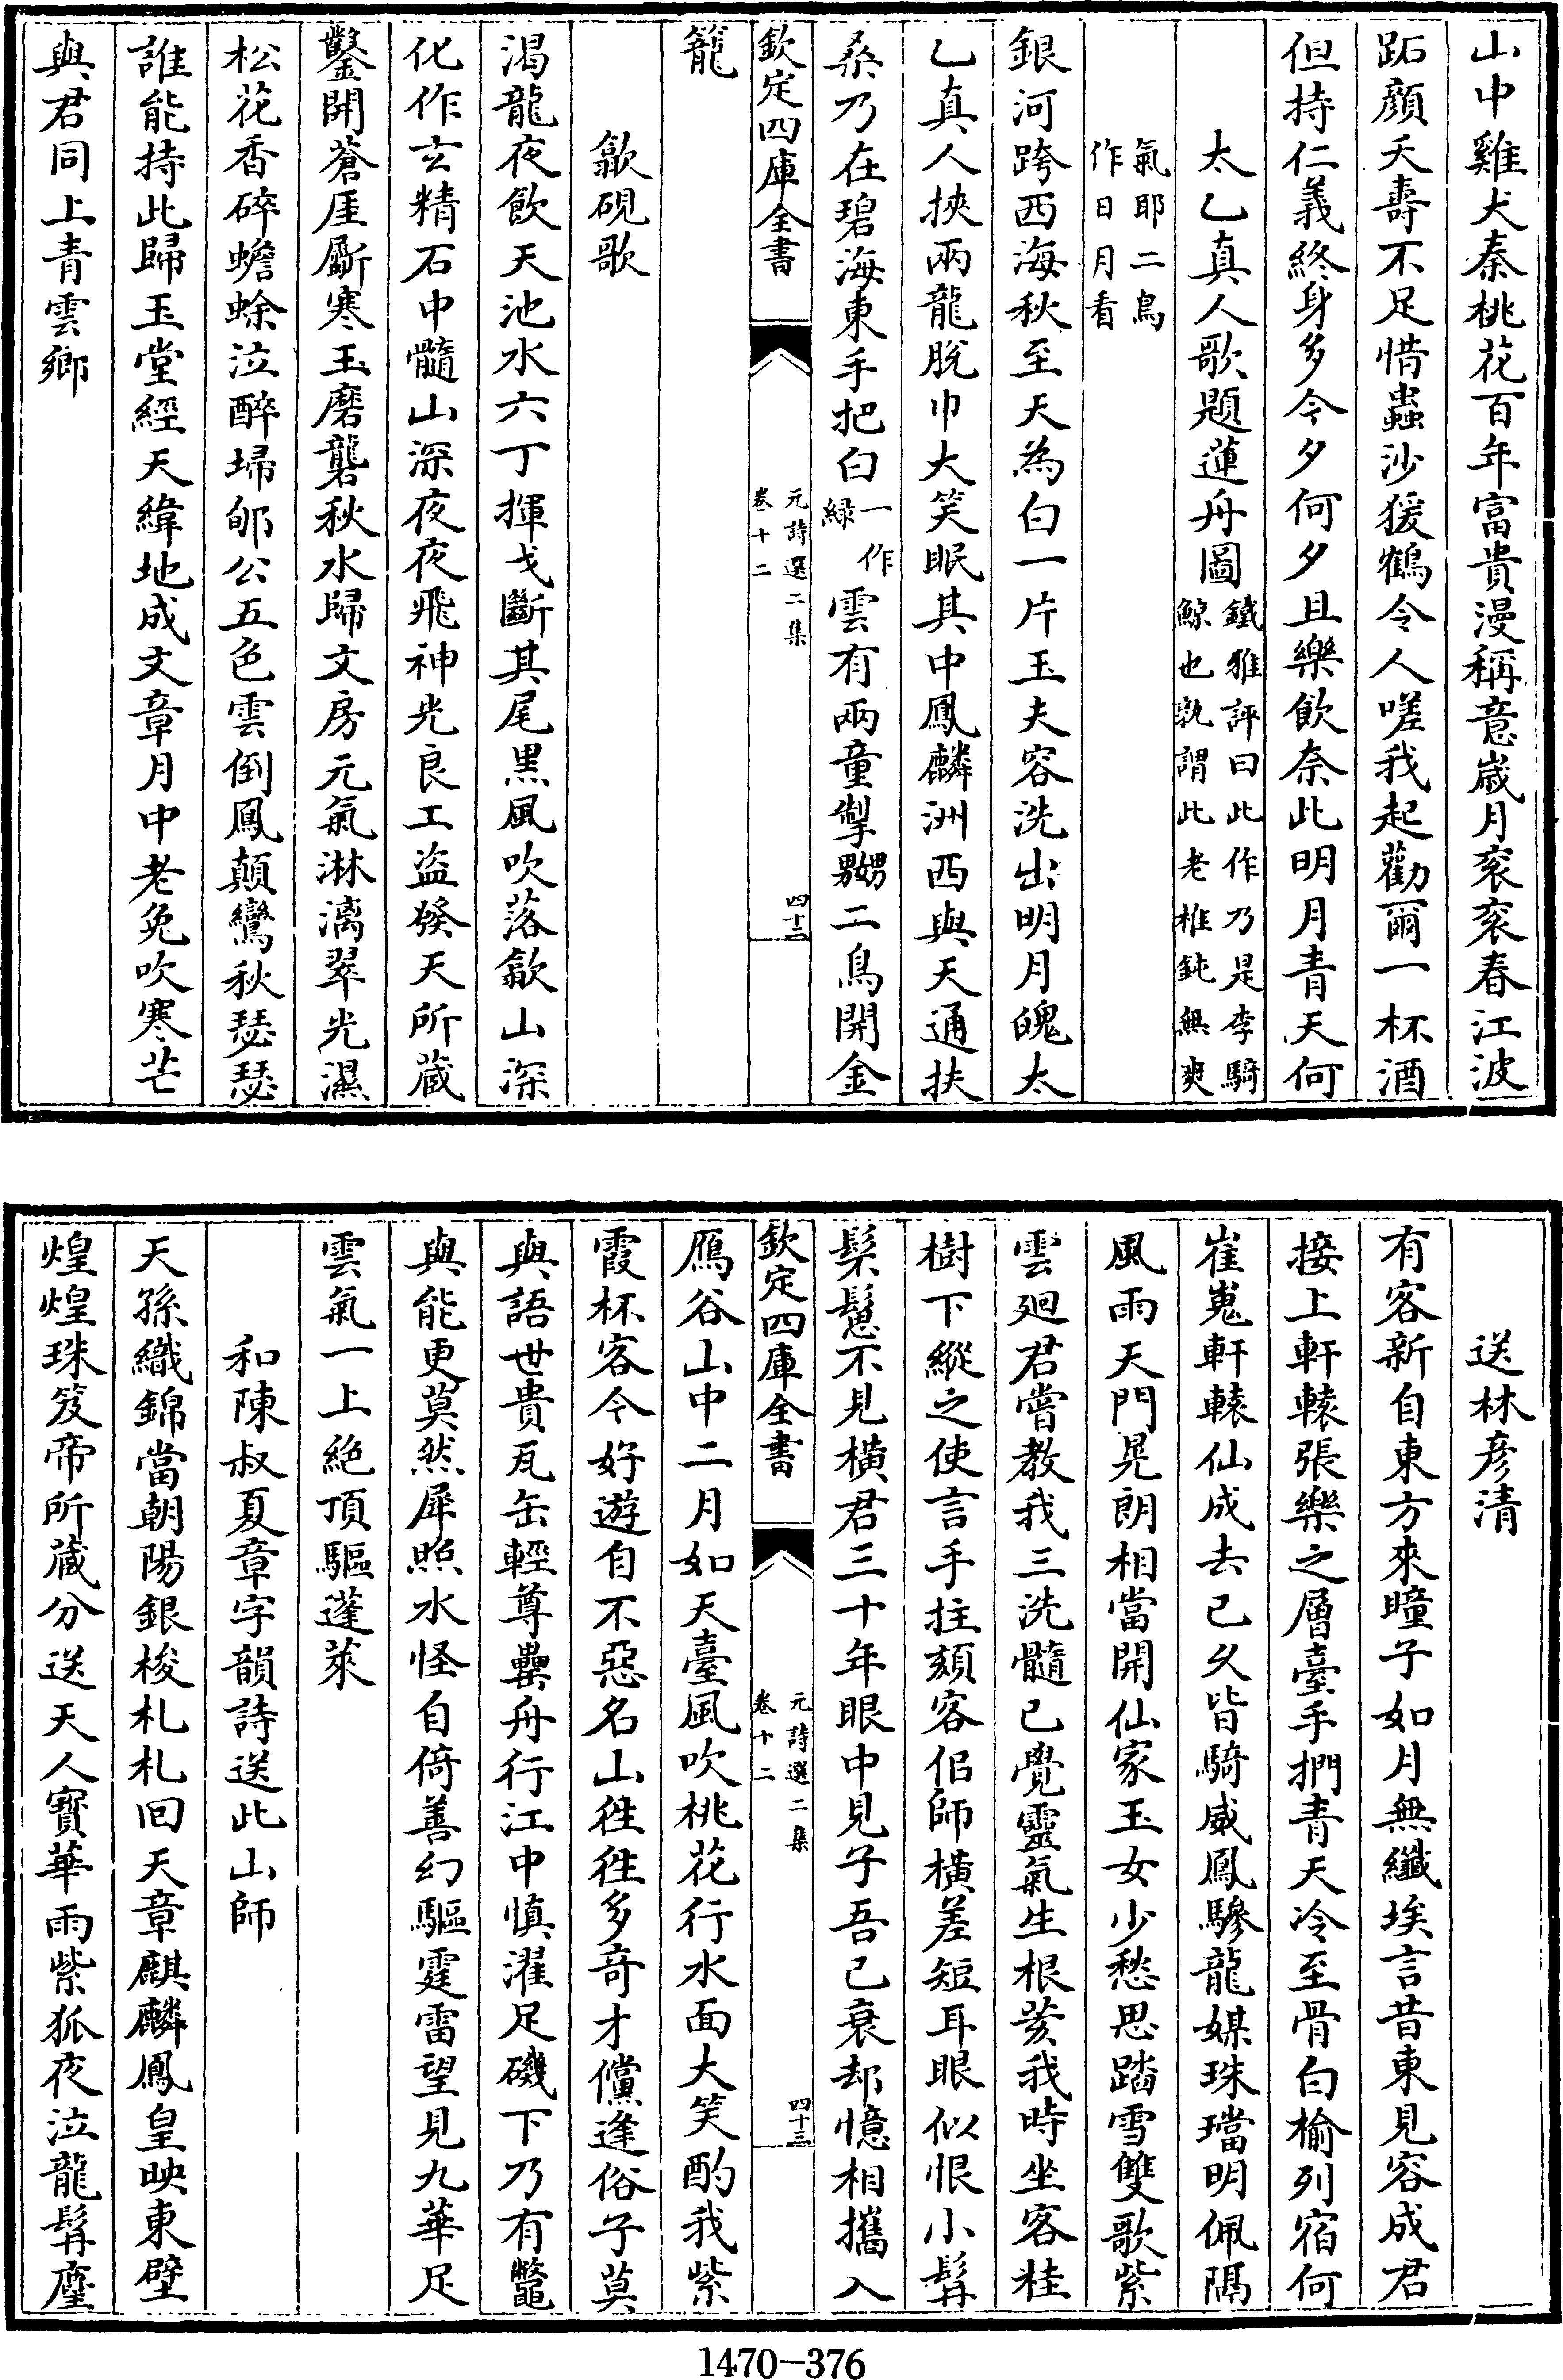 山中雞犬秦桃花百年富貴漫稱意歳月衮衮春江波
跖顔夭壽不足惜蟲沙猨鶴令人嗟我起勸爾一杯酒
但持仁義終身多今夕何夕且樂飲奈此明月青天何
太乙真人歌題蓮舟圖鐵雅評曰此作乃是李騎
鯨也孰謂此老椎鈍無爽
氣耶二鳥
作日月看
銀河跨西海秋至天為白一片玉夫容洗出明月魄太
乙真人挾兩龍脫巾大笑眠其中鳳麟洲西與天通扶
桑乃在碧海東手把白一作
緑雲有兩童掣嬲二鳥開金
欽定四庫全書
元詩選二集
卷十二
四十二
籠
歙硯歌
渴龍夜飲天池水六丁揮戈斷其尾黒風吹落歙山深
化作玄精石中髓山深夜夜飛神光良工盜發天所藏
鑿開蒼厓斸寒玉磨礱秋水歸文房元氣淋漓翠光濕
松花香碎蟾蜍泣醉埽郇公五色雲倒鳳顛鸞秋瑟瑟
誰能持此歸玉堂經天緯地成文章月中老兔吹寒芒
與君同上青雲鄉
送林彦清
有客新自東方來瞳子如月無纖埃言昔東見容成君
接上軒轅張樂之層臺手捫青天冷至骨白榆列宿何
崔嵬軒轅仙成去已乆皆騎威鳳驂龍媒珠璫明佩隔
風雨天門晃朗相當開仙家玉女少愁思踏雪雙歌紫
雲廻君嘗教我三洗髓已覺靈氣生根荄我時坐客桂
樹下縱之使言手拄頦客佀師横差短耳眼似恨小髯
髹鬆不見横君三十年眼中見子吾已衰却憶相攜入
欽定四庫全書
元詩選二集
卷十二
四十三
鴈谷山中二月如天臺風吹桃花行水面大笑酌我紫
霞杯客今好遊自不惡名山徃徃多竒才儻逢俗子莫
與語世貴瓦缶輕尊罍舟行江中慎濯足磯下乃有鼈
與能更莫然犀照水怪自倚善幻驅霆雷望見九華足
雲氣一上絶頂驅蓬萊
和陳叔夏章字韻詩送此山師
天孫織錦當朝陽銀梭札札回天章麒麟鳳皇映東壁
煌煌珠笈帝所藏分送天人寳華雨紫狐夜泣龍髯塵
1470-376